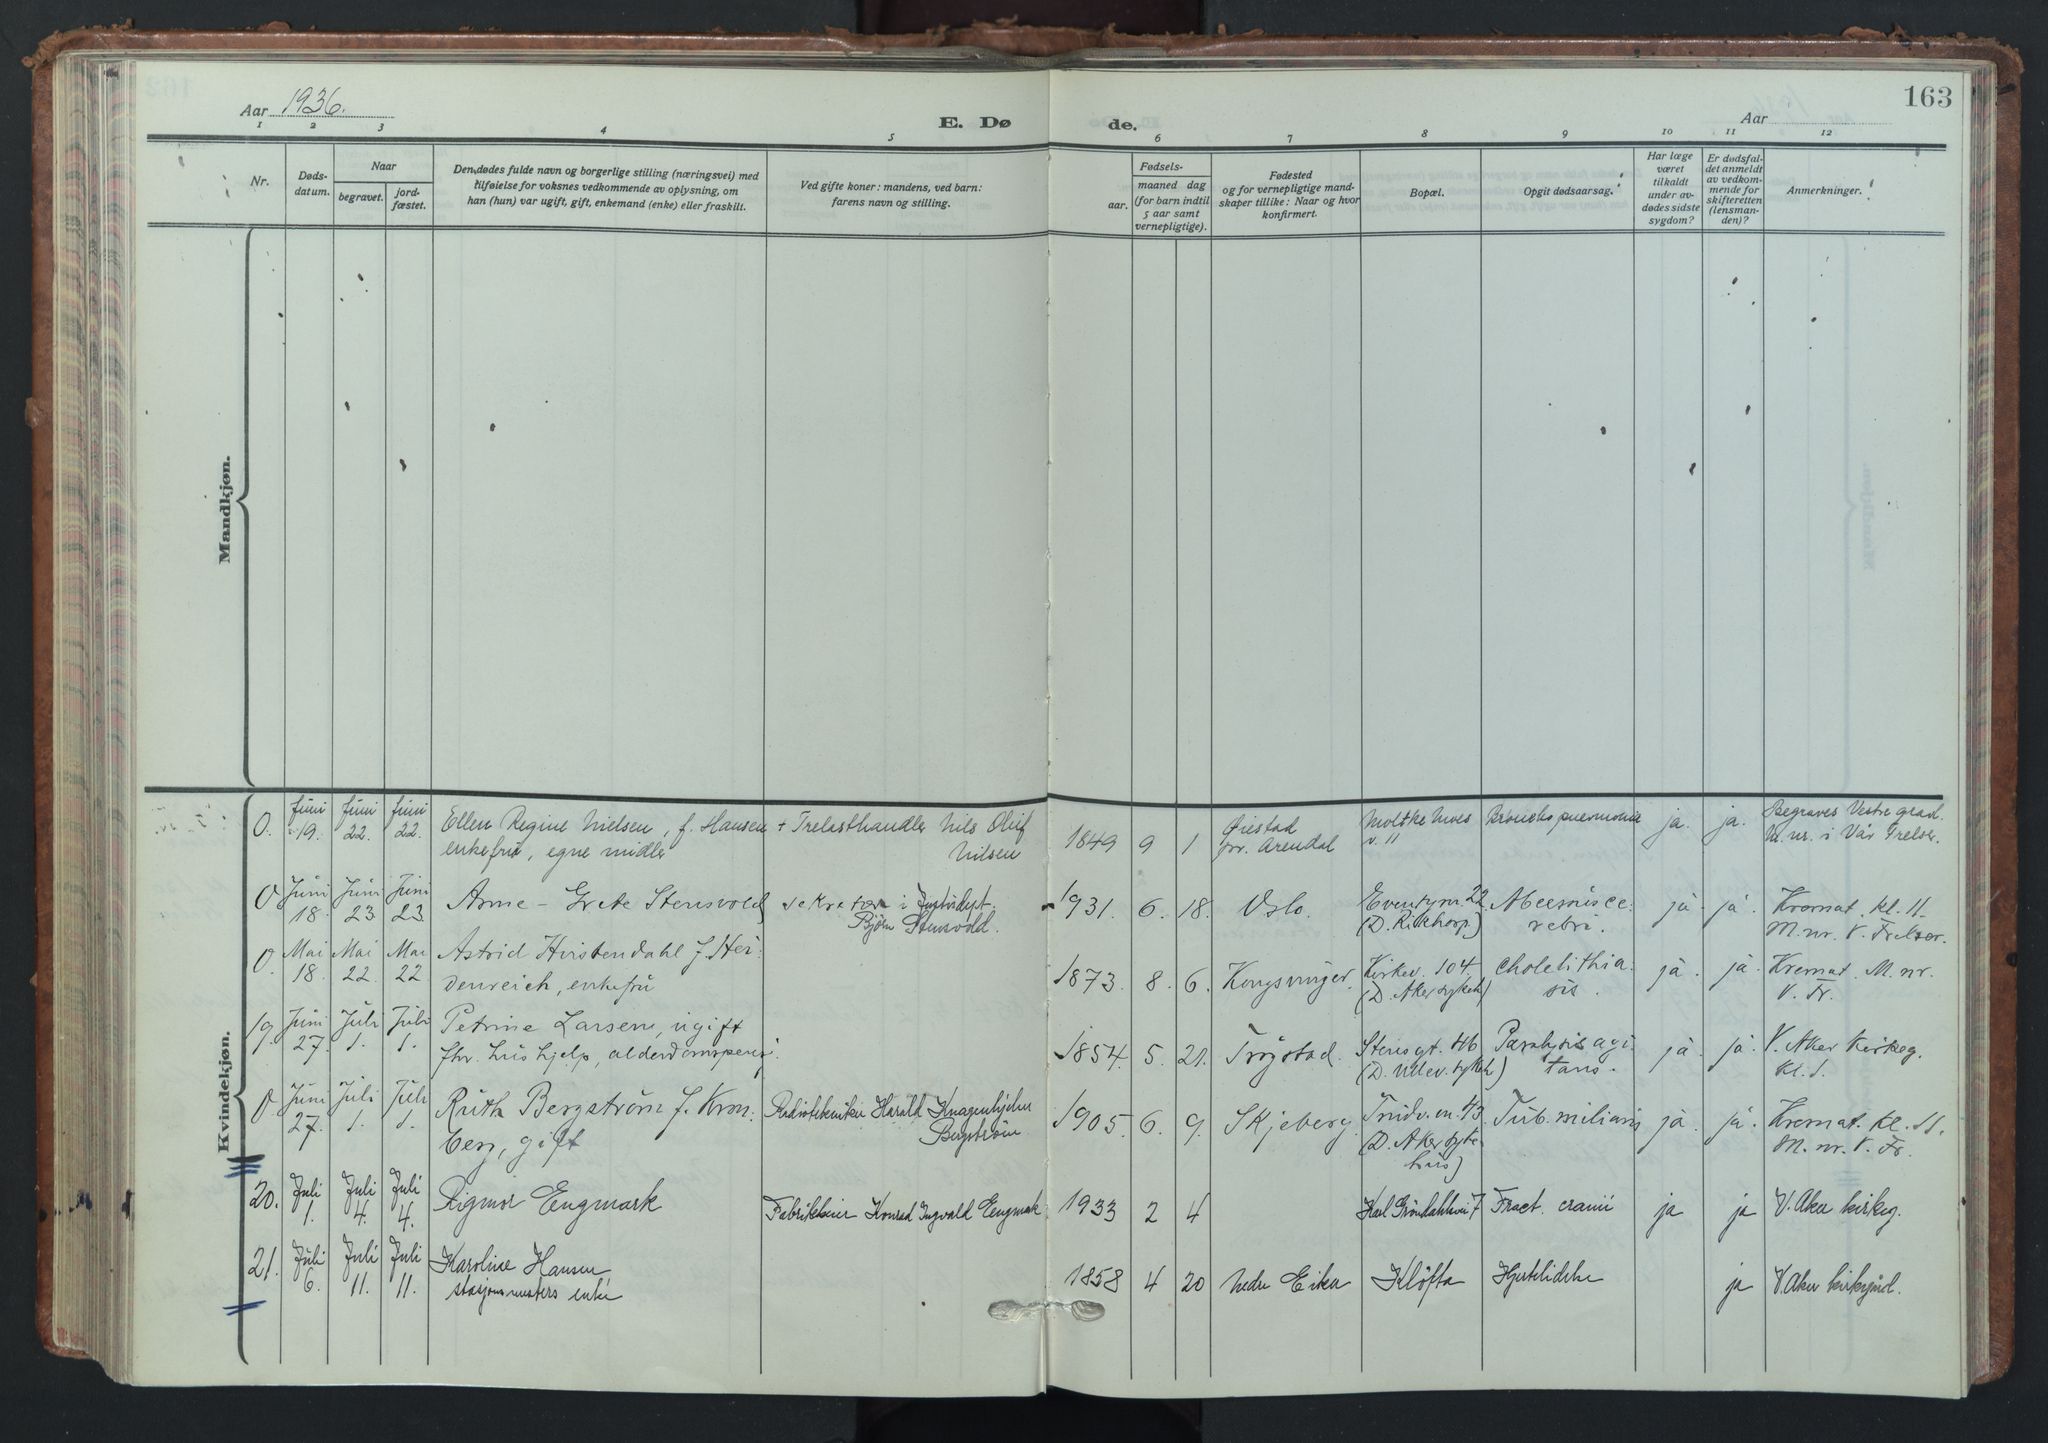 163
Aar 1936.
E. Døde.
Aar
1 2 3 4 5 6 7 8 9 10 11 12
Nr.
Døds-
datum.
Naar
begravet.
jord-
fæstet.
Den dødes fulde navn og borgerlige stilling (næringsvei) med
tilføielse for voksnes vedkommende av oplysning, om
han (hun) var ugift, gift, enkemand (enke) eller fraskilt.
Ved gifte koner: mandens, ved barn:
farens navn og stilling.
Fødsels-
aar.
maaned dag
(for barn indtil
5 aar samt
vernepligtige).
Fødested
og for vernepligtige mand-
skaper tillike: Naar og hvor
konfirmert.
Bopæl.
Opgit dødsaarsag.
Har læge
været
tilkaldt
under av-
dødes sidste
sygdom?
Er dødsfal-
det anmeldt
av vedkom-
mende for
skifteretten
(lensman-
den)?
Anmerkninger.
Mandkjøn.
Kvindekjøn.
0. Juni 19. Juni 22. Juni 22. Ellen Regine Nielsen, f. Hansen + Trelasthandler Nils Oluf 1849 9 1 Øiestad Moltke Moes Bronchopneumonia ja. ja. Begraves Vestre gravl.
enkefru, egne midler Nilsen pr. Arendal v. 11 M. nr. i Vår Frelser.
0 Juni 18. Juni 23 Juni 23 Anne-Grete Stensvold sekretær i Justisdept. 1931. 6. 18. Oslo. Eventyrv. 22 ja. ja. Kremat. kl. 11.
Bjørn Stensvold. (D. Rikshosp.) M. nr. V. Frelser.
0. Mai 18. Mai 22. Mai 22 Astrid Hvistendahl f. Hei- 1873. 8. 6. Kongsvinger. Kirkev. 104. Cholelithia- ja. ja. Kremat. M. nr.
denreich, enkefru (D. Aker sykeh) sis. V. Fr.
19. Juni 27. Juli 1. Juli 1. Petrine Larsen, ugift 1854. 5. 21. Trøgstad. Stensgt. 46 Paralysis agi- ja. ja. V. Aker Kirkeg.
fhv. hushjelp, alderdomspens. (D. Ullev. sykeh) tans. Kl. 1.
0 Juni 27. Juli 1. Juli 1. Ruth Bergström f. Kron- Radiotekniker Harald Knagenhjelm 1905. 6. 9. Skjeberg. Trudv. en. 43 Tub. miliaris ja. ja. Kremat. kl. 11.
berg, gift Bergström (D. Aker syke- M. nr. V. Fr.
hus)
20. Juli 1. Juli 4. Juli 4. Rigmor Engmark Fabrikkeier Konrad Ingvald Engmark 1933 2 4 Karl Gröndahlsvei 7 Fract. cranii ja ja V. Aker kirkeg.
21. Juli 6. Juli 11. Juli 11. Karoline Hansen 1858 4 20 Nedre Eiker Kløfta Hjertelidelse ja V. Aker kirkegård.
stasjonsmesters enke